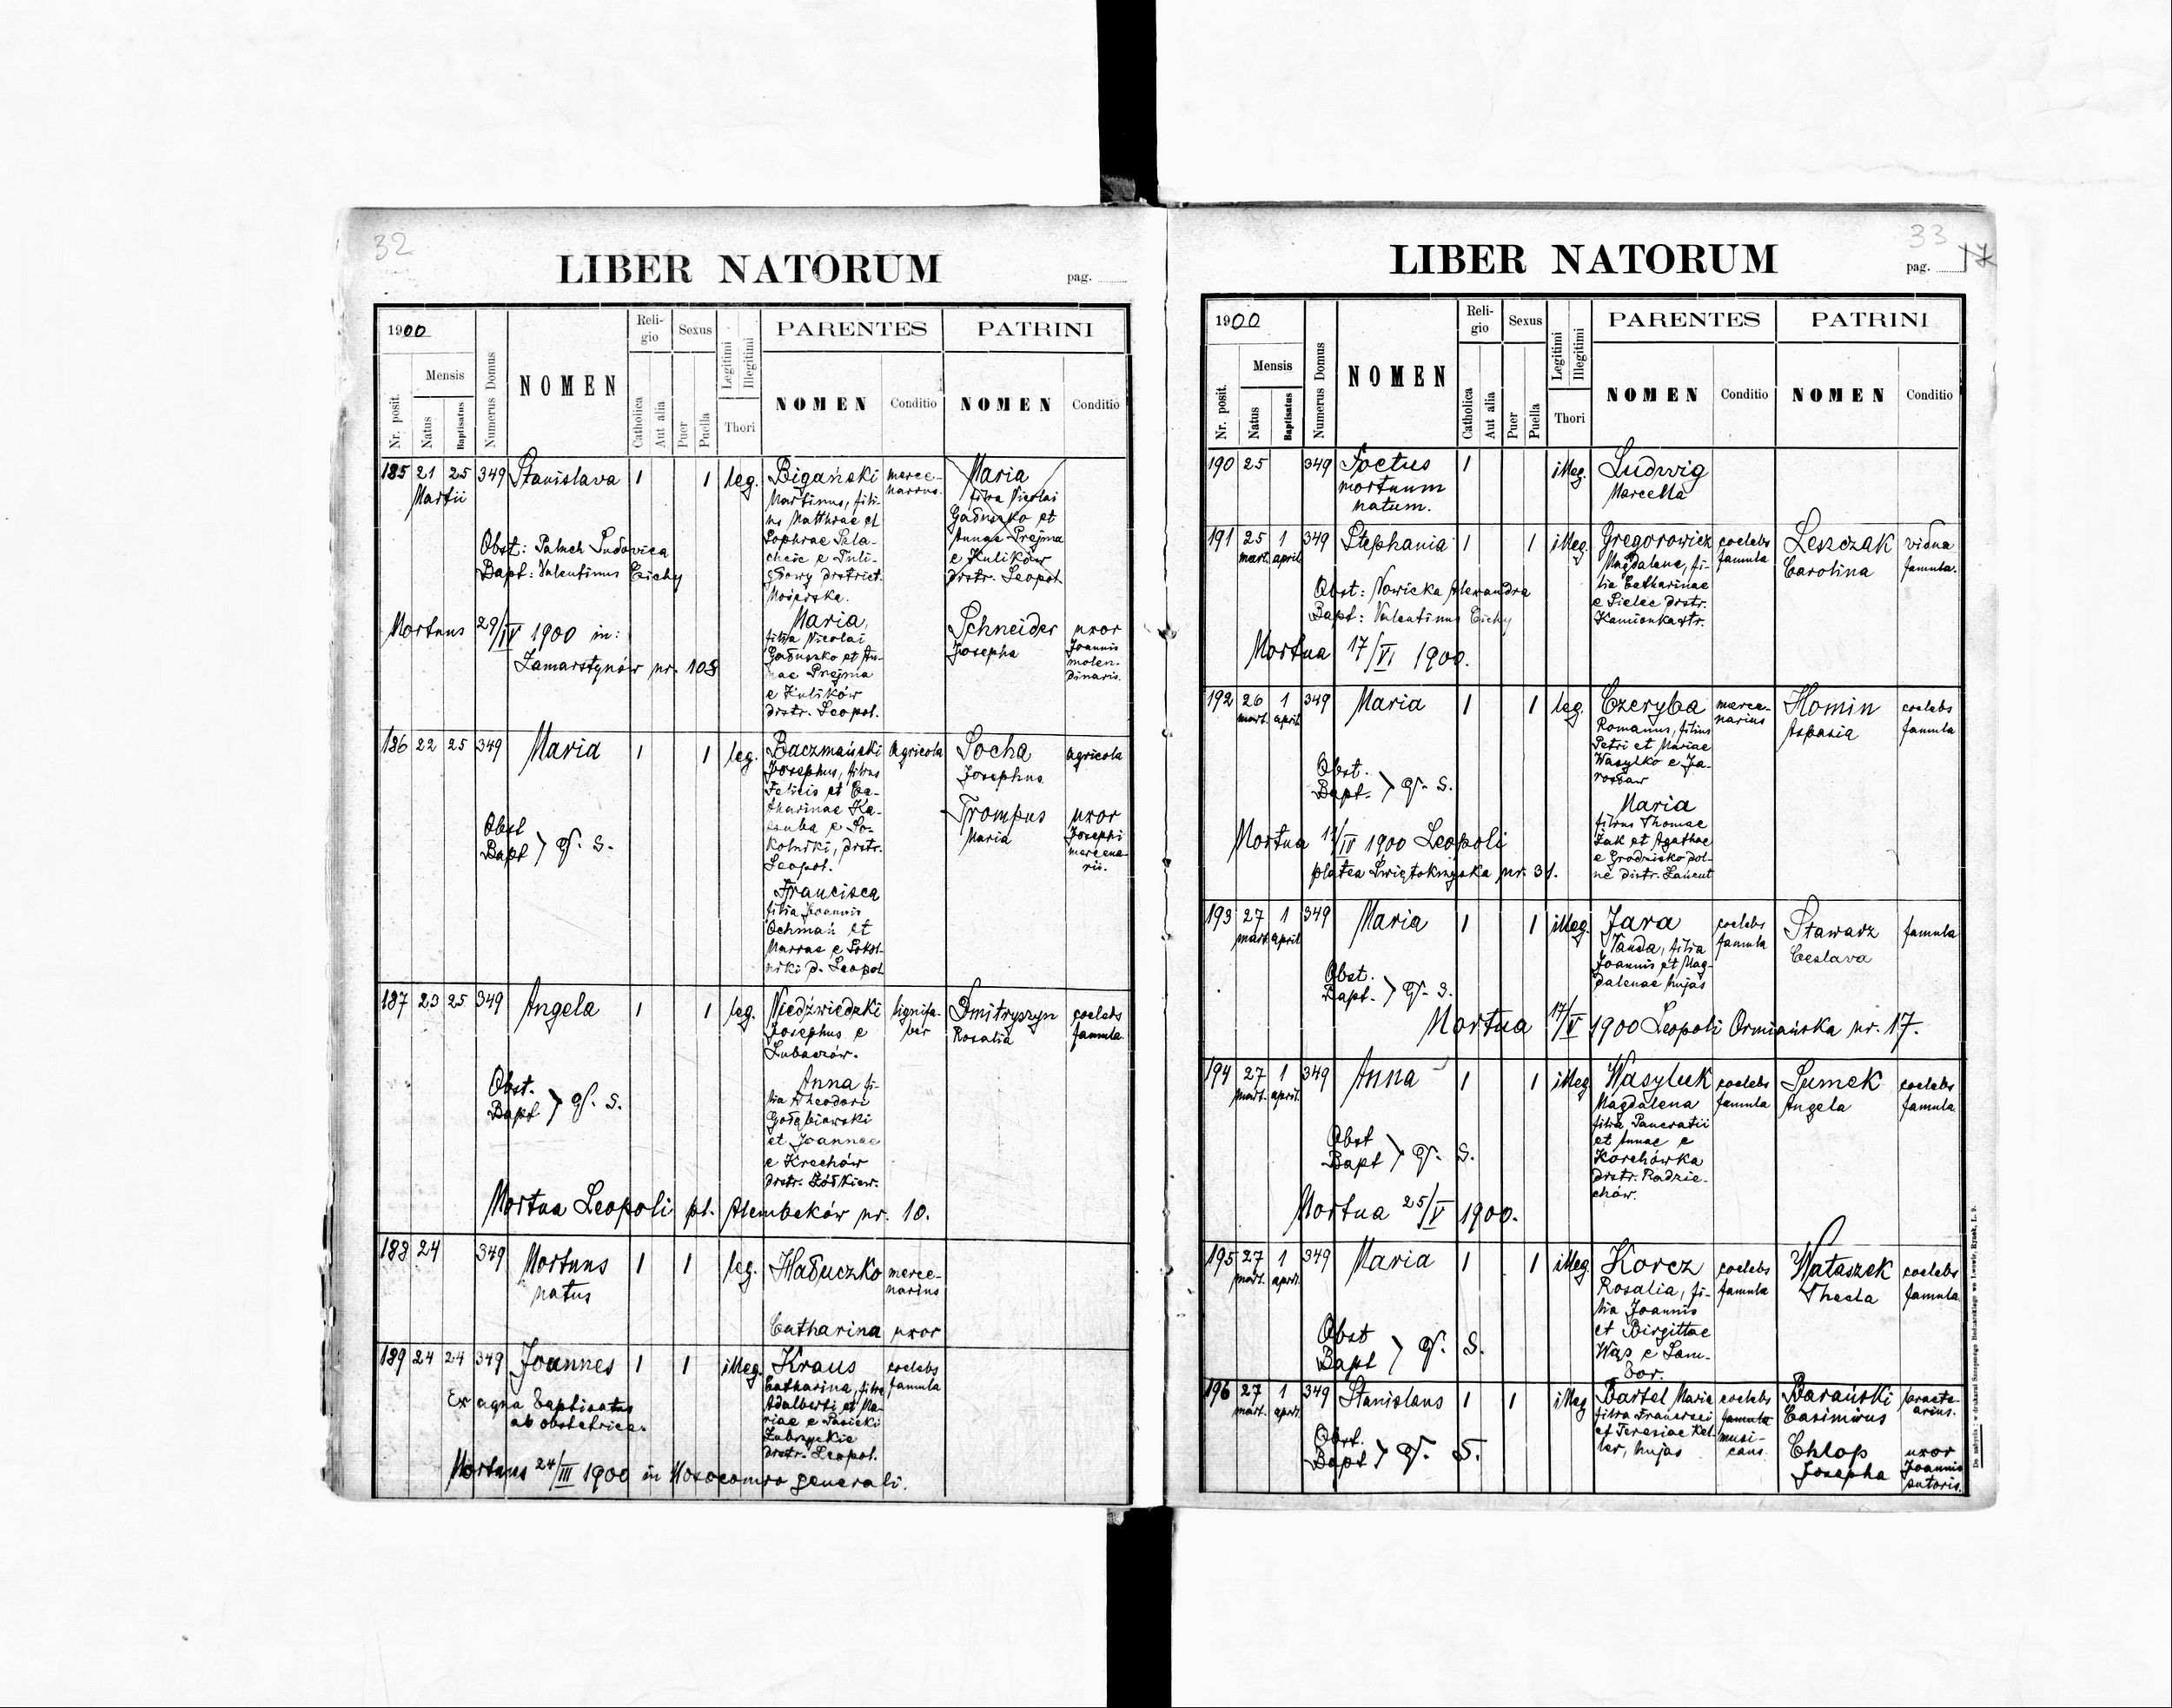 32
LIBER NATORUM
pag.
1900
Nr. posit.
Mensis
Natus
Baptisatus
Numerus Domus
NOMEN
Religio
Catholica
Aut alia
Sexus
Puer
Puella
Legitimi
Illegitimi
Thori
PARENTES
NOMEN
Conditio
PATRINI
NOMEN
Conditio
185 21 25 349 Stanislava 1 1 leg. Bigański mercenarius. Maria
Martii
Martinus, filius Matthiae et
Sophiae
e Tuligłowy district.
Mościska.
filia Nicolai
Gałuszko et
Annae Prejma
e Kulików
distr. Leopol.
Obst: Paluch Ludovica
Bapt: Valentinus Cichy
Mortuus 29/IV 1900 in:
Zamarstynów nr. 108
Maria,
filia Nicolai
Gałuszko et Annae Prejma
e Kulików
distr. Leopol.
Schneider uxor
Josepha Joannis
molendinaris.
186 22 25 349 Maria 1 1 leg. Baczmański Agricola Socha agricola
Josephus, filius
Felicis et Catharinae Kaszuba e Sokolniki, distr.
Leopol.
Josephus
Trompus uxor
Maria Josephi
mercenarii.
Obst
Bapt } q. s.
Francisca
filia Joannis
Ochman et
Mariae e Sokolniki d. Leopol
187 23 25 349 Angela 1 1 leg. Niedźwiedzki lignifaber Dmitryszyn coelebs
Josephus e
Lubaczów.
Rosalia famula
Obst.
Bapt } q. s.
Anna filia Theodori
Gołębiowski
et Joannae
e Krechów
distr. Żółkiew.
Mortua Leopoli pl. Alembeków nr. 10.
188 24 349 Mortuus 1 1 leg. Hałuczko mercenarius
natus
Catharina uxor
189 24 24 349 Joannes 1 1 illeg. Kraus coelebs
Catharina, filia famula
Adalberti et Mariae e Pasieki
Zubrzyckie
distr. Leopol.
Ex aqua baptisatus
ab obstetrice.
Mortuus 24/III 1900 in Nosocomio generali.
33
17
LIBER NATORUM
pag.
1900
Nr. posit.
Mensis
Natus
Baptisatus
Numerus Domus
NOMEN
Religio
Catholica
Aut alia
Sexus
Puer
Puella
Legitimi
Illegitimi
Thori
PARENTES
NOMEN
Conditio
PATRINI
NOMEN
Conditio
190 25 349 Foetus 1 illeg. Ludwig
mortuum Marcella
natum.
191 25 1 349 Stephania 1 1 illeg. Gregorowicz coelebs Leszczak vidua
mart. april Magdalena, filia Catharinae famula Carolina famula.
e Sielec distr.
Kamionka str.
Obst: Nowicka Alexandra
Bapt: Valentinus Cichy
Mortua 17/VI 1900.
192 26 1 349 Maria 1 1 leg. Czeryba mercenarius Homin coelebs
mart. april Romanus, filius Aspasia famula
Petri et Mariae
Wasylko e Jarosław
Obst.
Bapt. } q. s.
Maria
filius Thomae
Żak et Agathae
e Grodzisko dolne distr. Łańcut
Mortua 12/IV 1900 Leopoli
platea Świętokrzyska nr. 31.
193 27 1 349 Maria 1 1 illeg. Jara coelebs Stawarz famula
mart. april Vanda, filia famula Ceslava
Joannis et Magdalenae hujas
Obst.
Bapt. } q. s.
Mortua 17/V 1900 Leopoli Ormiańska nr. 17.
194 27 1 349 Anna 1 1 illeg Wasyluk coelebs Sumek coelebs
mart. april. Magdalena famula Angela famula
filia Pancratii
et Annae e
Korchówka
distr. Radziechów.
Obst
Bapt } q. s.
Mortua 25/V 1900.
195 27 1 349 Maria 1 1 illeg. Korcz coelebs Wataszek coelebs
mart. april. Rosalia, filia Joannis famula Thecla famula
et Birgittae
Wąs e Sambor.
Obst
Bapt } q. s.
196 27 1 349 Stanislaus 1 1 illeg Bartel Maria coelebs Barański
mart. april. filia Francisci famula Casimirus
et Teresiae Keller, hujas musicans
Obst.
Bapt } q. S.
Chłop uxor
Josepha Joannis
sutoris.
De nabycia w drukarni Szczęsnego Bednarskiego we Lwowie, Rynek, L. 9.